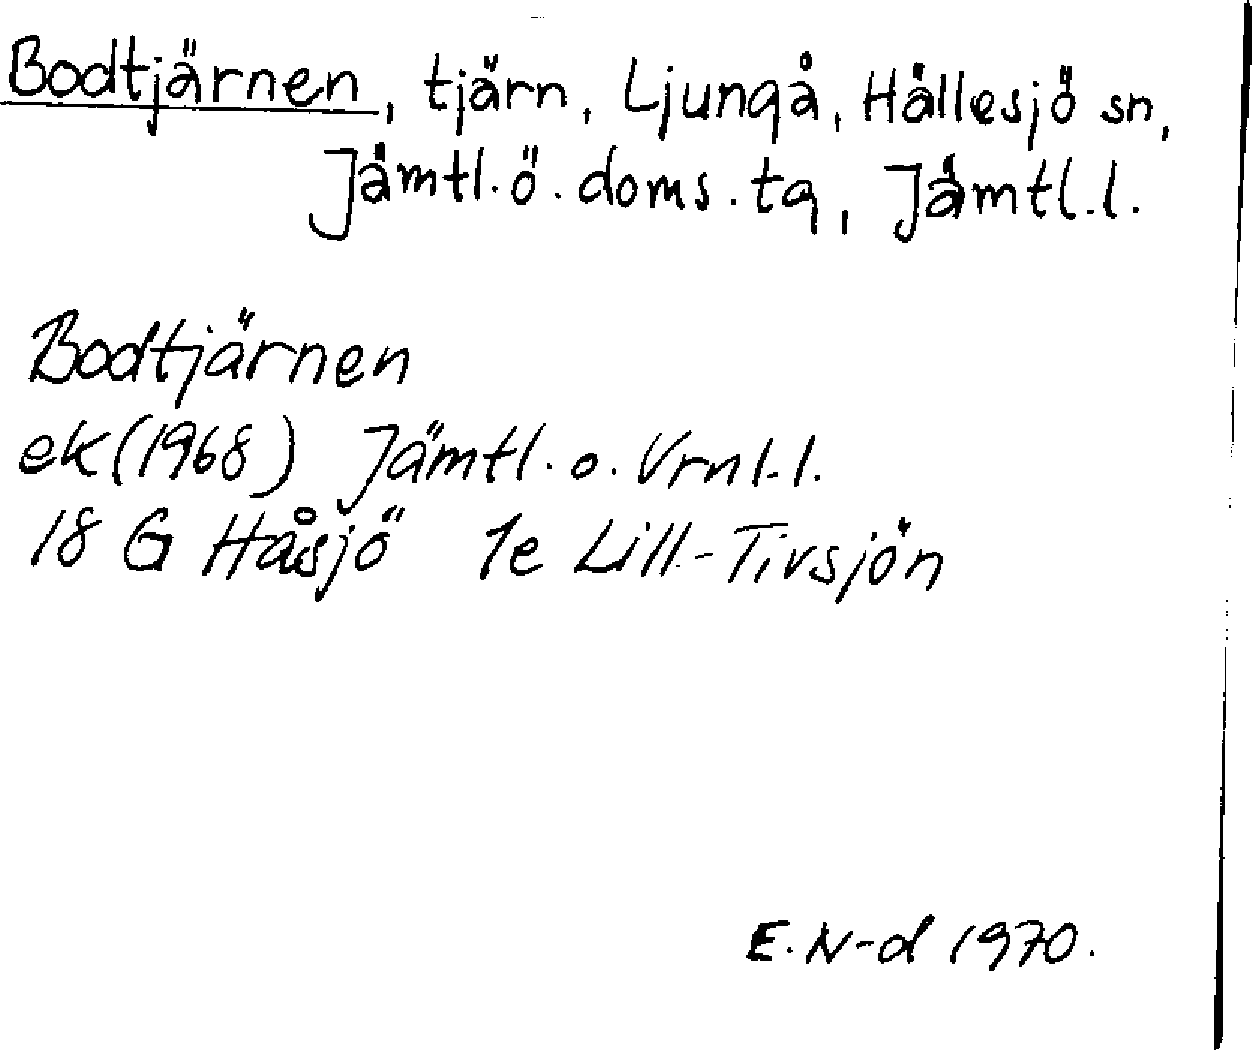 Bodtjärnen, tjärn, Ljungå, Hällesjö sn,
Jämtl. ö. doms. tg, Jämtl. l.
Bodtjärnen
ek (1968) Jämtl. o. Vrnl. l.
18 G Håsjö 1e Lill-Tivsjön
E. N-d 1970.